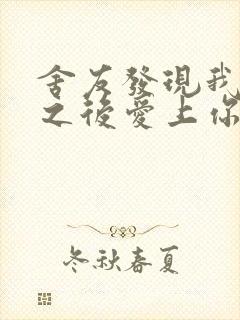 舍友發現我
之後愛上你
冬秋春夏